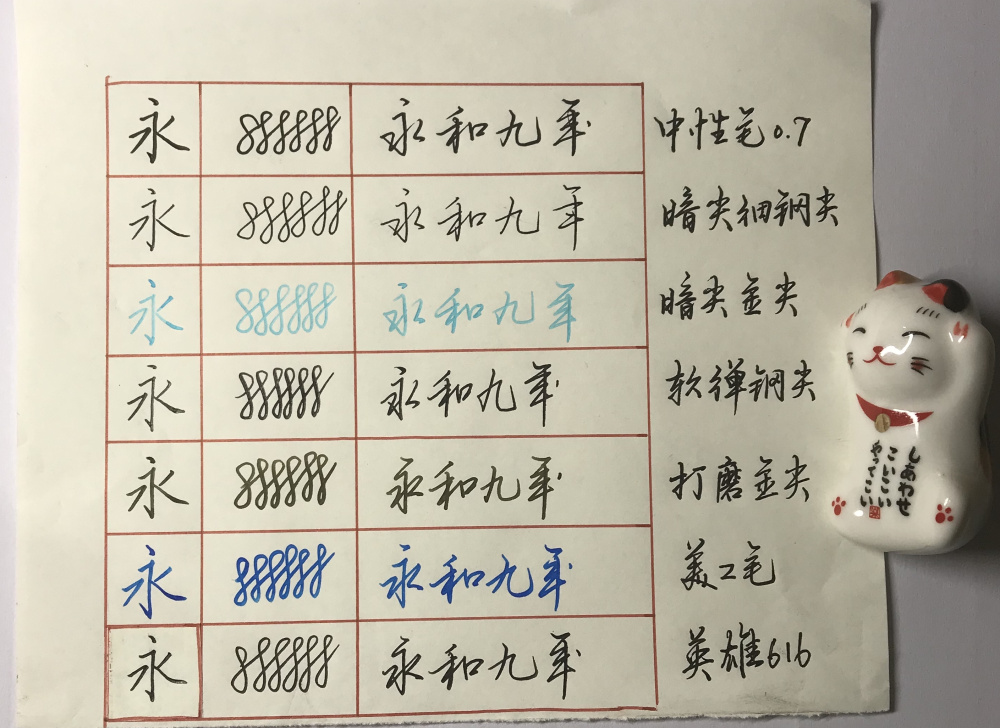 永 永和九年 中性笔0.7
永 永和九年 暗尖细钢尖
永 永和九年 暗尖金尖
永 永和九年 软弹钢尖
永 永和九年 打磨金尖
永 永和九年 美工笔
永 永和九年 英雄616
しあわせ
こいこい
やってこい